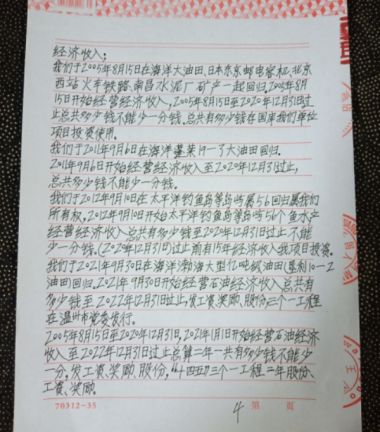 经济收入;
我们于2005年8月15日在海洋大油田、日本东京邮电穿机、北京
西站火车铁路、南昌水泥厂矿产一起回归。2005年8月
15日开始经营经济收入,2005年8月15日至2020年12月31日过
止总共多少钱不能少一分钱。总共有多少钱在国库我们单位
项目投资使用。
我们于2011年9月6日在海洋蓬莱19一了大油田回归。
2011年9月6日开始经营经济收入至2020年12月31过止,
总共多少钱不能少一分钱。
我们于2012年9月10日在太平洋钓鱼岛等岛屿属56回归属我们
所有权。2012年9月10日开始太平洋钓鱼岛等岛屿56个鱼水产
经营经济收入总共多少钱至2020年12月31日过止不能
少一分钱。(2020年12月31)过止前有15年经济收入我项目投资。
我们于2021年9月30日在海洋渤海大型亿吨级油田(垦利10一2
油田回归。2021年9月30日开始经营石油经济收入总共有
多少钱至2022年12月31日过止,发工资、奖励、股份,三个一工程
在温州市党委发行。
2005年8月15日至2020年12月31日,2021年1月1日开始经营石油经济
收入至2022年12月31日过止总算二年一共有多少钱不能少
一分,发工资、奖励、股份,“十四五”三个一工程二年股份、
工资、奖励。
70312-35
4 第 页